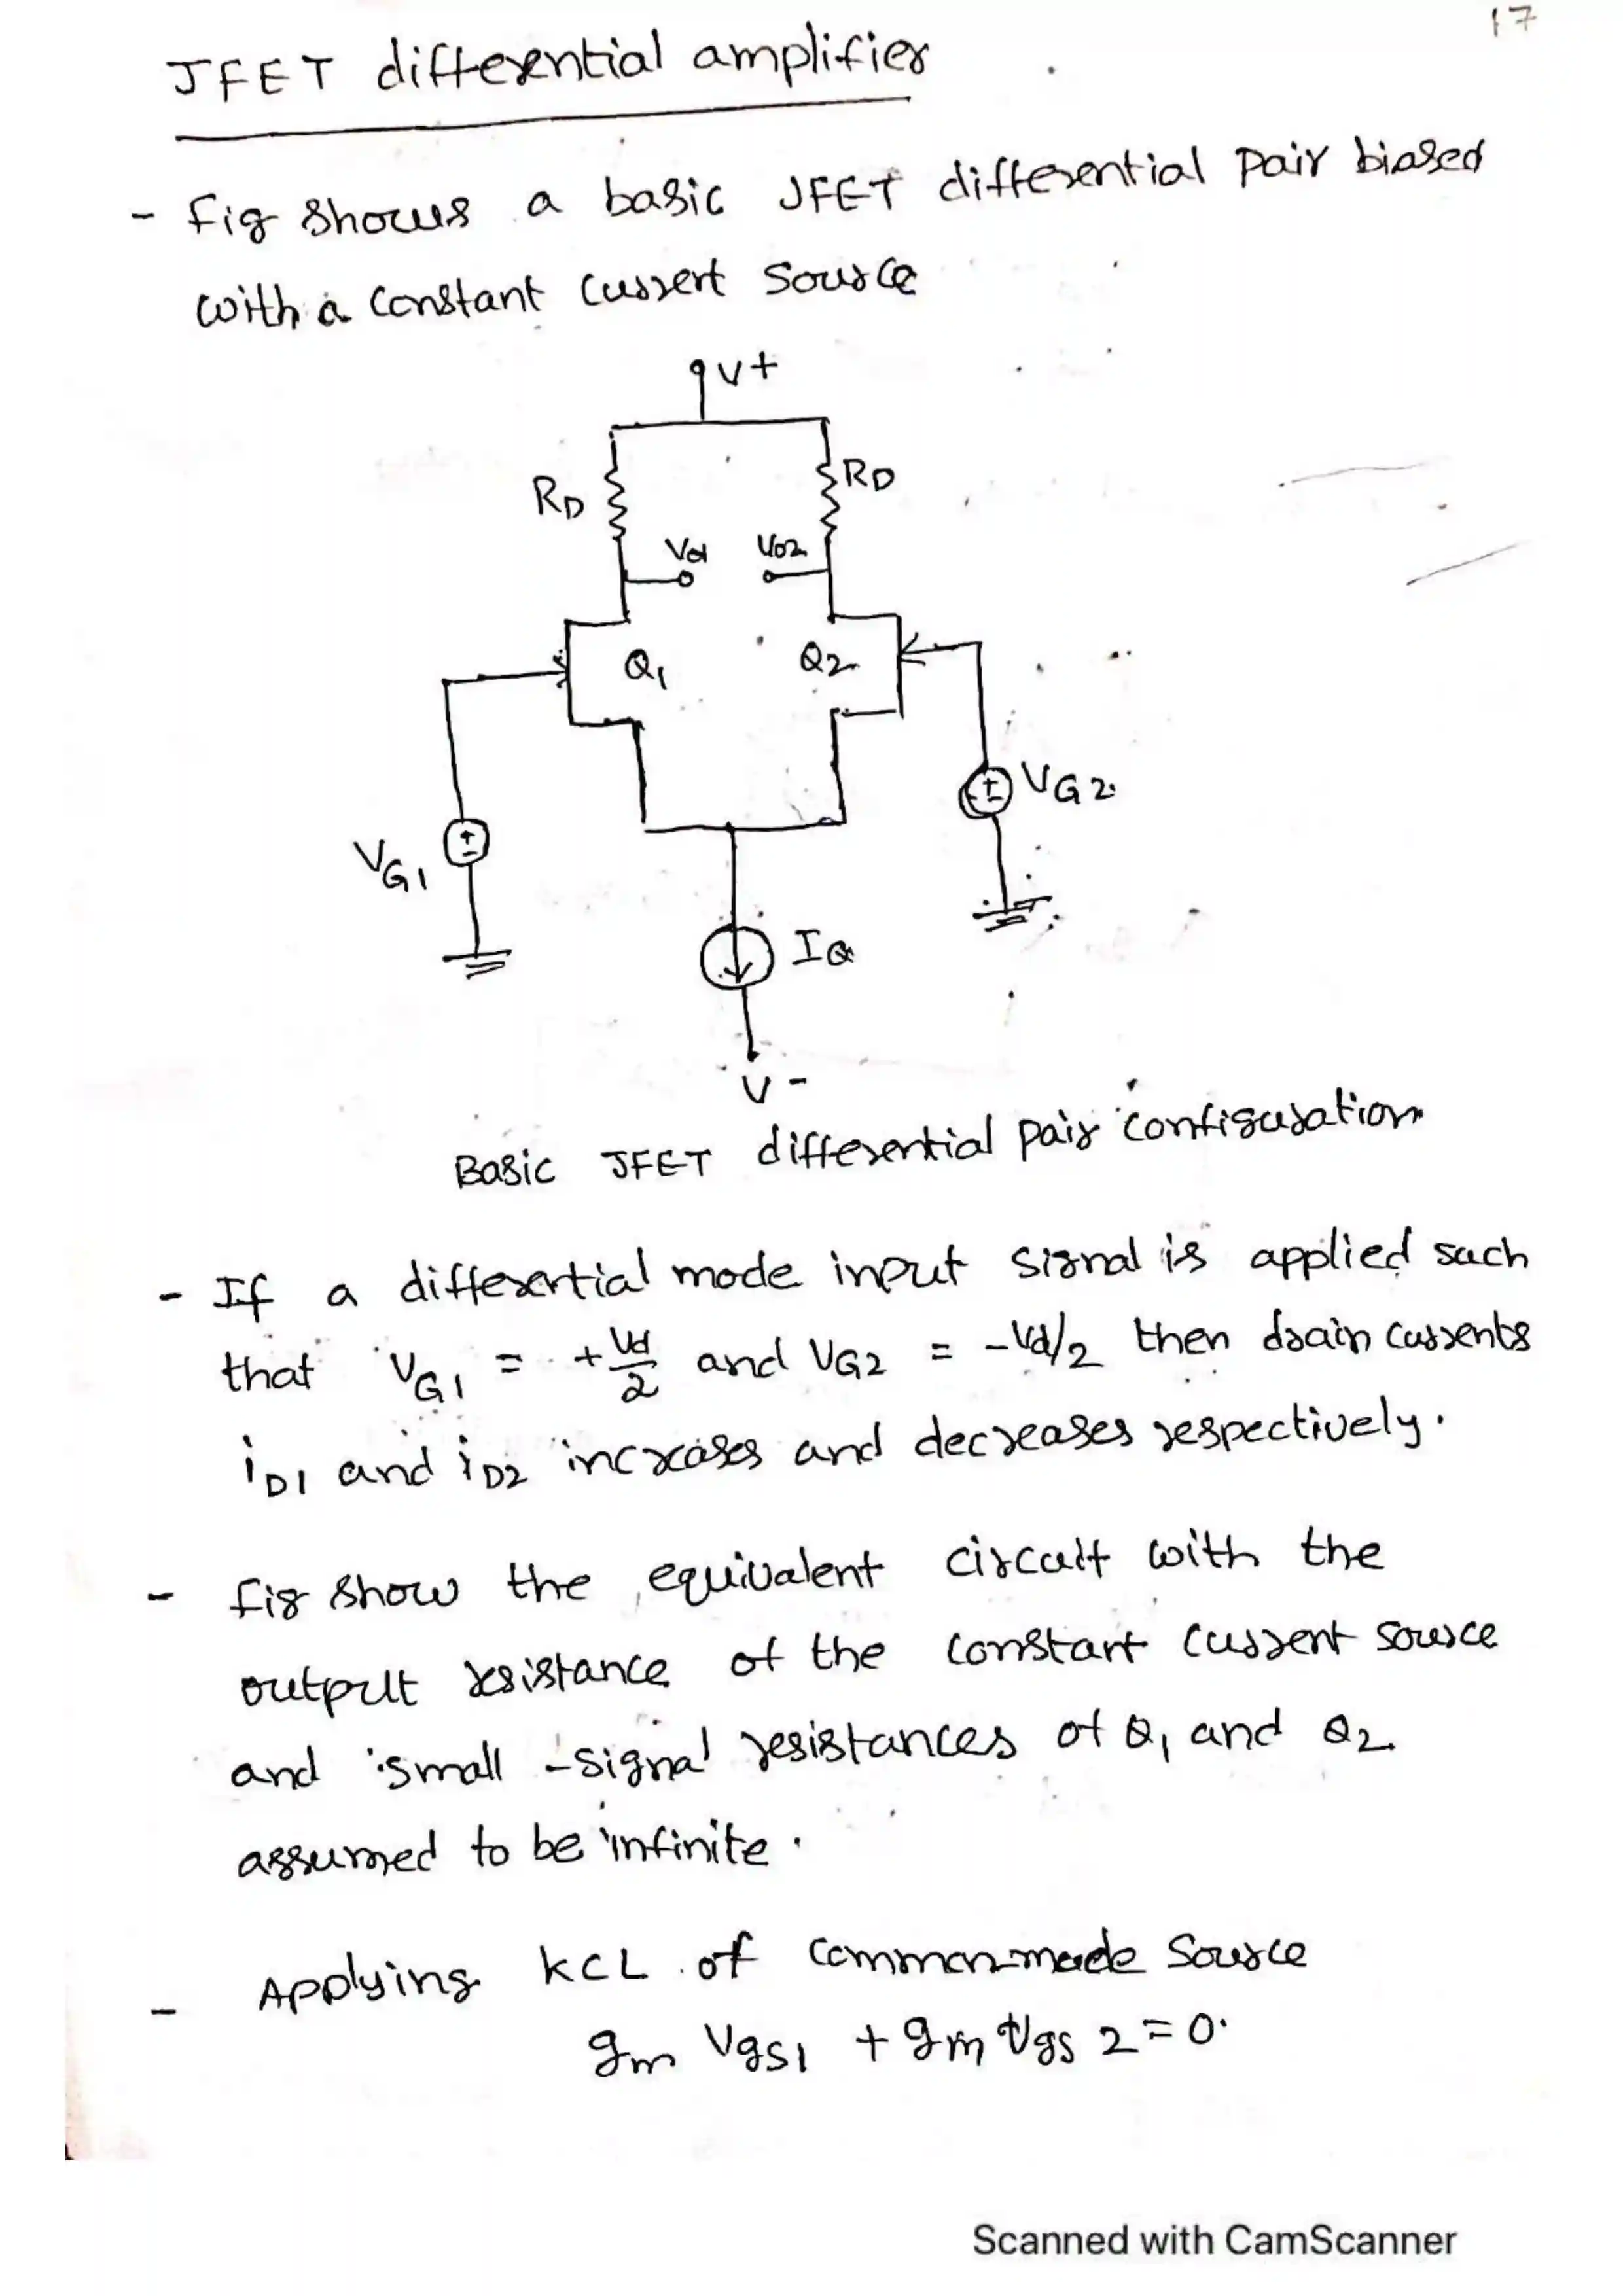 17
JFET differential amplifier
- fig shows a basic JFET differential pair biased
with a constant current source
V+
RD
RD
Vo1 Vo2
Q1 Q2
VG2
VG1
IQ
V-
Basic JFET differential pair configuration
- If a differential mode input signal is applied such
that VG1 = +Vd/2 and VG2 = -Vd/2 then drain currents
iD1 and iD2 increases and decreases respectively.
- fig show the equivalent circuit with the
output resistance of the constant current source
and small-signal resistances of Q1 and Q2
assumed to be infinite.
- Applying KCL of common-mode source
gm Vgs1 + gm Vgs2 = 0.
Scanned with CamScanner